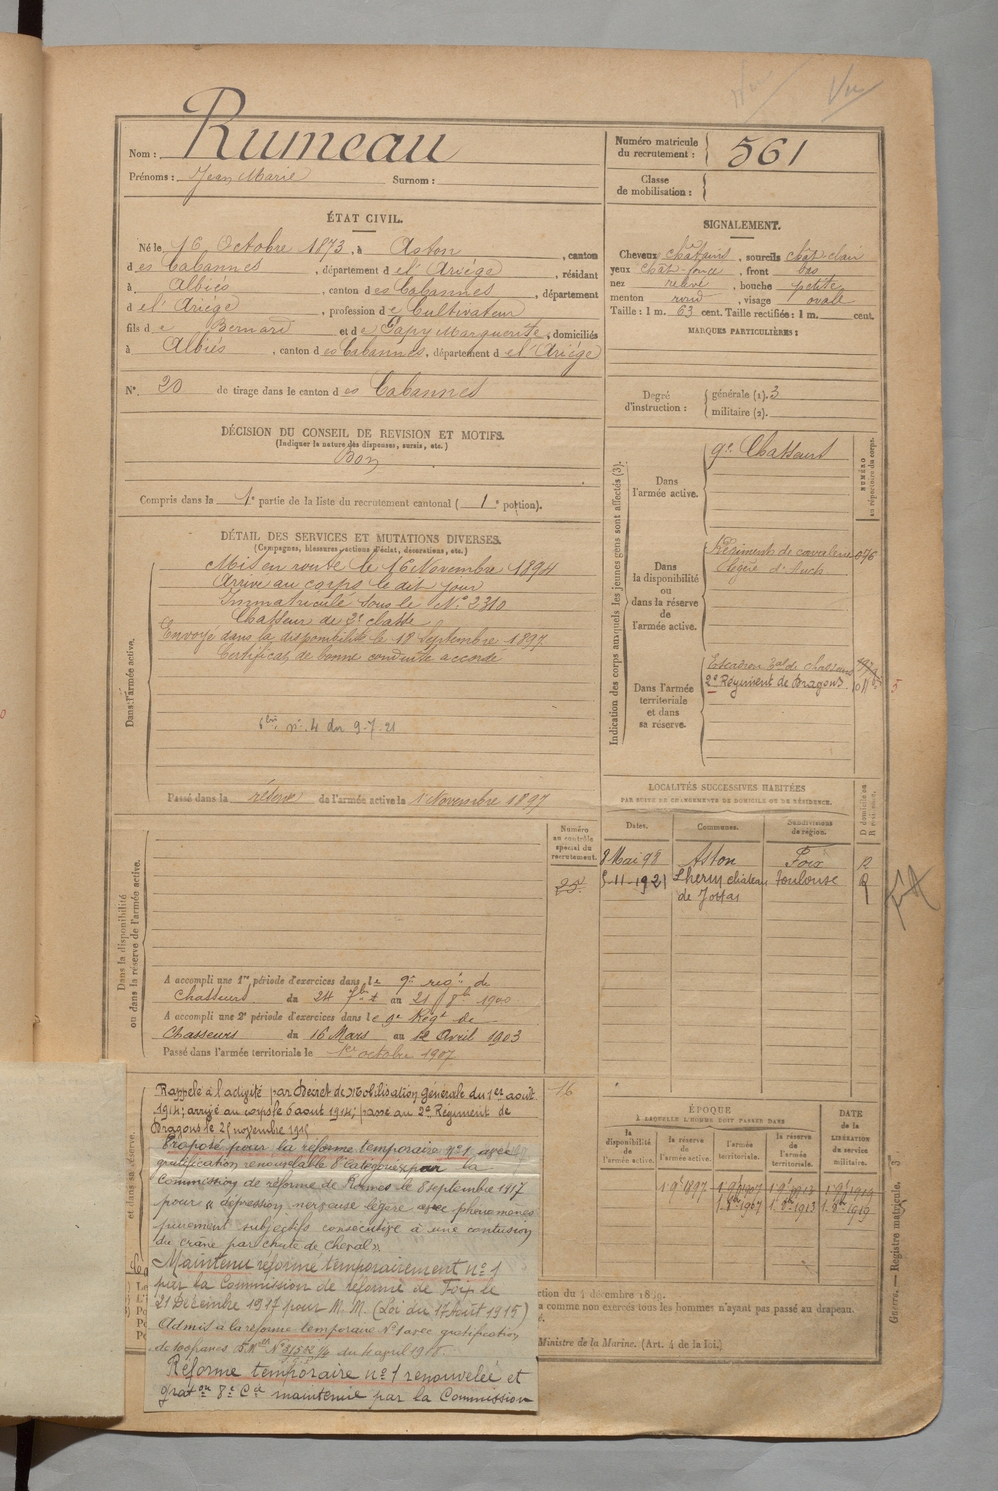 Vu
Nom : Rumeau
Prénoms : Jean Marie Surnom :
Numéro matricule du recrutement : 561
Classe de mobilisation :
ÉTAT CIVIL.
Né le 16 Octobre 1873, à Aston, canton
d es Cabannes, département d e l'Ariége, résidant
à Albiés, canton d es Cabannes, département
d e l'Ariége, profession d e Cultivateur
fils d e Bernard et d e Gapy Marguerite, domiciliés
à Albiés, canton d es Cabannes, département d e l'Ariége
N° 20 de tirage dans le canton d es Cabannes
SIGNALEMENT.
Cheveux châtains, sourcils chât-clair
yeux chât-foncé, front bas
nez relevé, bouche petite
menton rond, visage ovale
Taille : 1 m. 63 cent. Taille rectifiée : 1 m. cent.
MARQUES PARTICULIÈRES :
Degré d'instruction : générale (1). 3
militaire (2).
DÉCISION DU CONSEIL DE REVISION ET MOTIFS.
(Indiquer la nature des dispenses, sursis, etc.)
Bon
Compris dans la 1e partie de la liste du recrutement cantonal ( 1e portion).
DÉTAIL DES SERVICES ET MUTATIONS DIVERSES.
(Campagnes, blessures, actions d'éclat, décorations, etc.)
Dans l'armée active.
Mis en route le 16 Novembre 1894
Arrivé au corps le dit jour
Immatriculé sous le N° 2310
Chasseur de 2e classe
Envoyé dans la disponibilité le 18 Septembre 1897
Certificat de bonne conduite accordé
n° 4 du 9-7-21
Passé dans la réserve de l'armée active le 1 Novembre 1897
Indication des corps auxquels les jeunes gens sont affectés (3).
NUMÉRO au répertoire du corps.
Dans l'armée active.
9e Chasseurs
Dans la disponibilité ou dans la réserve de l'armée active.
Régiment de cavalerie 076
légère d'Auch
Dans l'armée territoriale et dans sa réserve.
2e Régiment de Dragons
5
LOCALITÉS SUCCESSIVES HABITÉES
PAR SUITE DE CHANGEMENTS DE DOMICILE OU DE RÉSIDENCE.
Dates. Communes. Subdivisions de région. D domicile ou R résidence.
8 Mai 98 Aston Foix R
5-11-1921 Lherm chateau Toulouse R
de Jottas
Numéro au contrôle spécial du recrutement.
25
Dans la disponibilité ou dans la réserve de l'armée active.
A accompli une 1re période d'exercices dans le 9e reg't de
Chasseurs du 24 7bre au 21 8bre 1900
A accompli une 2e période d'exercices dans le 9e Regt de
Chasseurs du 16 Mars au 12 Avril 1903
Passé dans l'armée territoriale le 1er octobre 1907
et dans sa réserve.
16
Rappelé à l'activité par Décret de Mobilisation générale du 1er août
1914; arrivé au corps le 6 août 1914; passé au 2e Régiment de
Dragons le 21 novembre 1915
Proposé pour la réforme temporaire n°1 avec
gratification renouvelable 8e catégorie par la
Commission de réforme de Rennes le 8 septembre 1917
pour « dépression nerveuse légère avec phénomènes
purement subjectifs consécutive à une contusion
du crâne par chute de cheval »
Maintenu réformé temporairement n°1
par la Commission de réforme de Foix le
21 Décembre 1917 pour M. M. (Loi du 17 Août 1915)
Admis à la réforme temporaire N°1 avec gratification
du 4 avril 1918
Réforme temporaire n°1 renouvelée et
grat on 8e Cie maintenue par la Commission
ÉPOQUE
À LAQUELLE L'HOMME DOIT PASSER DANS
DATE de la LIBÉRATION du service militaire.
la disponibilité de l'armée active. la réserve de l'armée active. l'armée territoriale. la réserve de l'armée territoriale.
1 9b 1897 1 9b 1907 1 9b 1913 1 9b 1919
1. 8bre 1907 1. 8bre 1913 1. 8bre 1919
ction du 4 décembre 1889.
a comme non exercés tous les hommes n'ayant pas passé au drapeau.
Ministre de la Marine. (Art. 4 de la loi.)
Guerre. — Registre matricule. 3